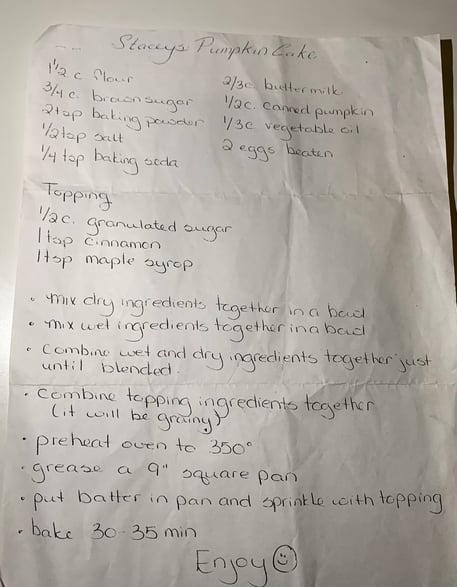 Staceys Pumpkin Cake
1 1/2 c flour
3/4 c. brown sugar
2tsp baking powder
1/2 tsp salt
1/4 tsp baking soda
2/3c. buttermilk
1/2c. canned pumpkin
1/3c vegetable oil
2 eggs beaten
Topping
1/2 c. granulated sugar
1tsp cinnamon
1tsp maple syrop
• mix dry ingredients together in a bowl
• mix wet ingredients together in a bowl
• Combine wet and dry ingredients together just
until blended.
• Combine topping ingredients together
(it will be grainy)
• preheat oven to 350°
• grease a 9" square pan
• put batter in pan and sprinkle with topping
• bake 30-35 min
Enjoy ☺